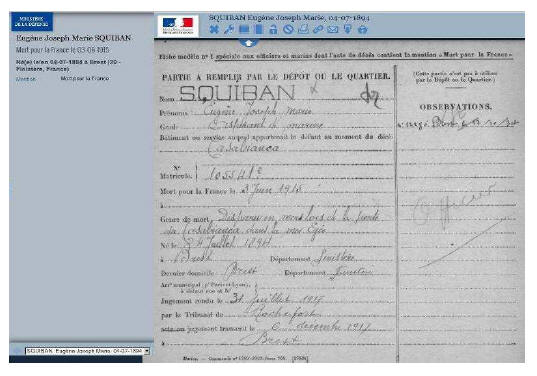 MINISTÈRE
DE LA DÉFENSE
Eugène Joseph Marie SQUIBAN
Mort pour la France le 03-06-1915
Né(e) le/en 04-07-1894 à Brest (29 -
Finistère, France)
Mention Mort pour la France
SQUIBAN Eugène Joseph Marie, 04-07-1894
Fiche modèle n° 1 spéciale aux officiers et marins dont l'acte de décès contient la mention « Mort pour la France »
PARTIE A REMPLIR PAR LE DÉPÔT OU LE QUARTIER.
(Cette partie n'est pas à utiliser
par le Dépôt ou le Quartier.)
Nom SQUIBAN
OBSERVATIONS.
Prénoms Eugène Joseph Marie
Grade
Bâtiment ou service auquel appartenait le défunt au moment du décès
Casabianca
N°
Matricule. 10554
Mort pour la France le 3 Juin 1915
Genre de mort Disparu en mer lors de la perte
du Casabianca dans la mer Egée
Né le 4 Juillet 1894
à Brest Département Finistère
Dernier domicile Brest Département Finistère
Arrt municipal (pr Paris et Lyon),
à défaut rue et N°
Jugement rendu le 31 juillet 1917
par le Tribunal de Rochefort
acte ou jugement transcrit le 6 décembre 1917
Brest
SQUIBAN Eugène Joseph Marie 04-07-1894